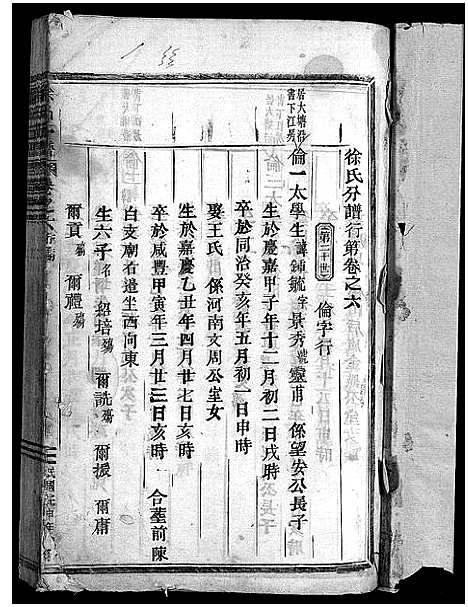 徐氏分譜行第卷之六
第二十世 倫字行
居大塘沿
書下江吳
倫一太學生諱鍾毓字景秀號靈甫係望安公長子
生於慶嘉甲子年十二月初二日戌時
卒於同治癸亥年五月初一日申時
娶王氏係河南文周公室女
生於嘉慶乙丑年四月廿七日亥時
卒於咸豐甲寅年三月廿三日亥時 合塟前陳
白支廟右邉坐西向東
生六子名紹培殤 爾詵殤 爾援 爾庸
爾貢殤 爾禮殤